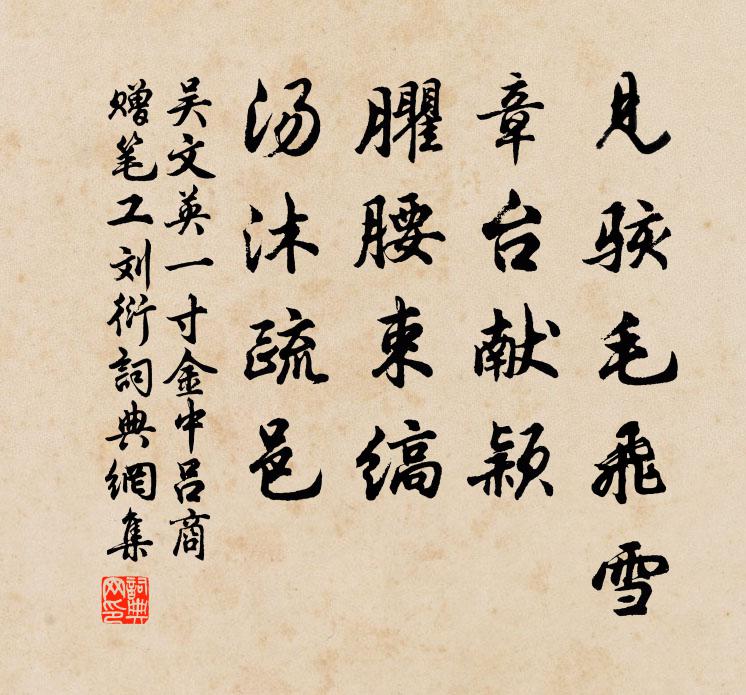 见骇毛飞雪
章台献颖
臞腰束缟
汤沐疏邑
吴文英一寸金中吕商
赠笔工刘衍詞典網集
詞典网印